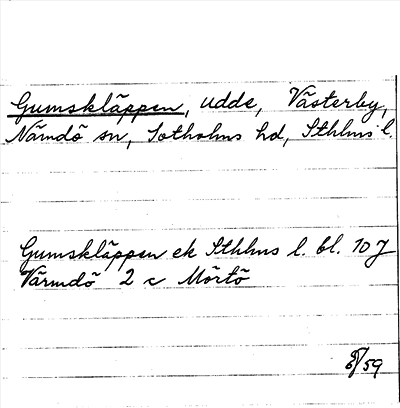 Gumskläppen, udde, Västerby,
Nämdö sn, Sotholms hd, Sthlms l.
Gumskläppen ek Sthlms l. bl. 107
Värmdö 2 c Mörtö
/59